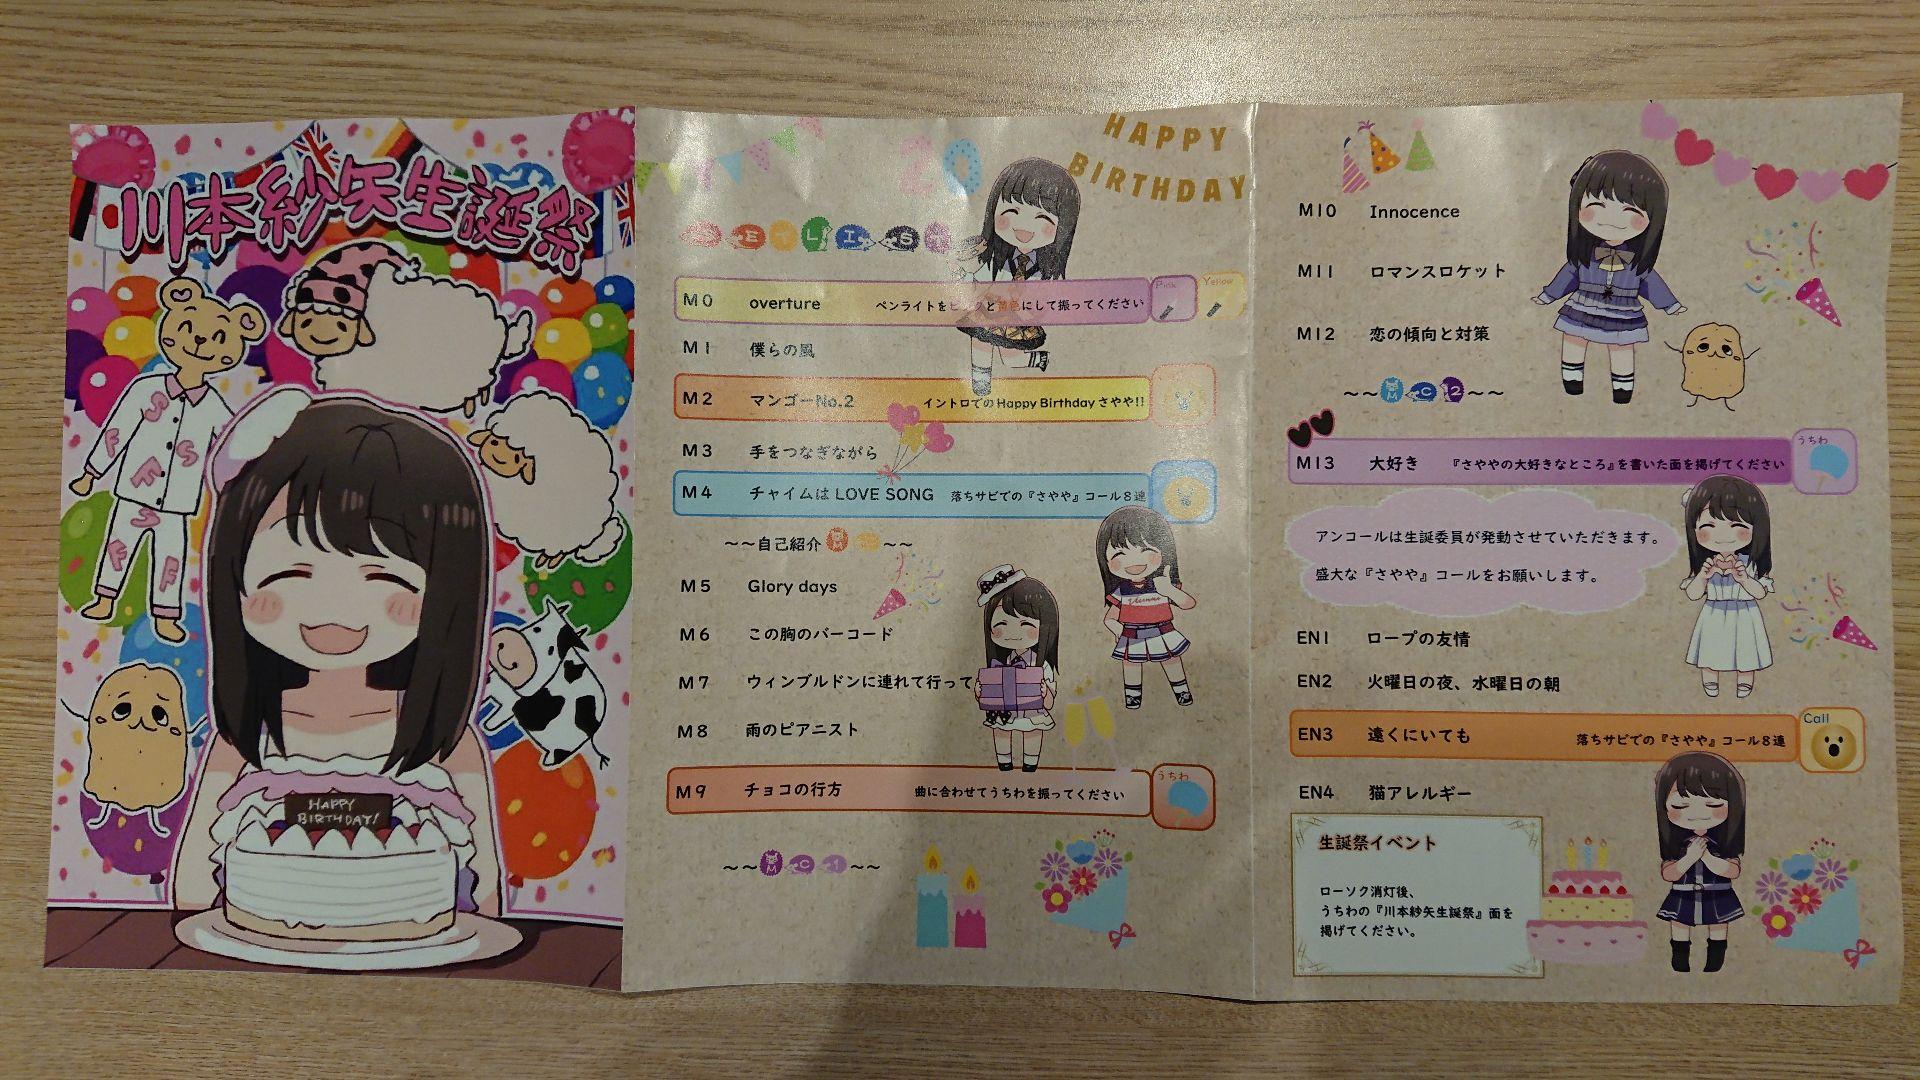 川本紗矢生誕祭
S
F
S
F
F
S
F
F
HAPPY
BIRTHDAY!
20
HAPPY
BIRTHDAY
SETLIST
M0 overture ペンライトをピンクと黄色にして振ってください Pink Yellow
M1 僕らの風
M2 マンゴーNo.2 イントロでのHappy Birthday さやや!!
M3 手をつなぎながら
M4 チャイムは LOVE SONG 落ちサビでの『さやや』コール8連
~~自己紹介 MC~~
M5 Glory days
M6 この胸のバーコード
M7 ウィンブルドンに連れて行って
M8 雨のピアニスト
M9 チョコの行方 曲に合わせてうちわを振ってください うちわ
~~MC1~~
M10 Innocence
M11 ロマンスロケット
M12 恋の傾向と対策
~~MC2~~
M13 大好き 『さややの大好きなところ』を書いた面を掲げてください うちわ
アンコールは生誕委員が発動させていただきます。
盛大な『さやや』コールをお願いします。
EN1 ロープの友情
EN2 火曜日の夜、水曜日の朝
EN3 遠くにいても 落ちサビでの『さやや』コール8連 Call
EN4 猫アレルギー
生誕祭イベント
ローソク消灯後、
うちわの『川本紗矢生誕祭』面を
掲げてください。